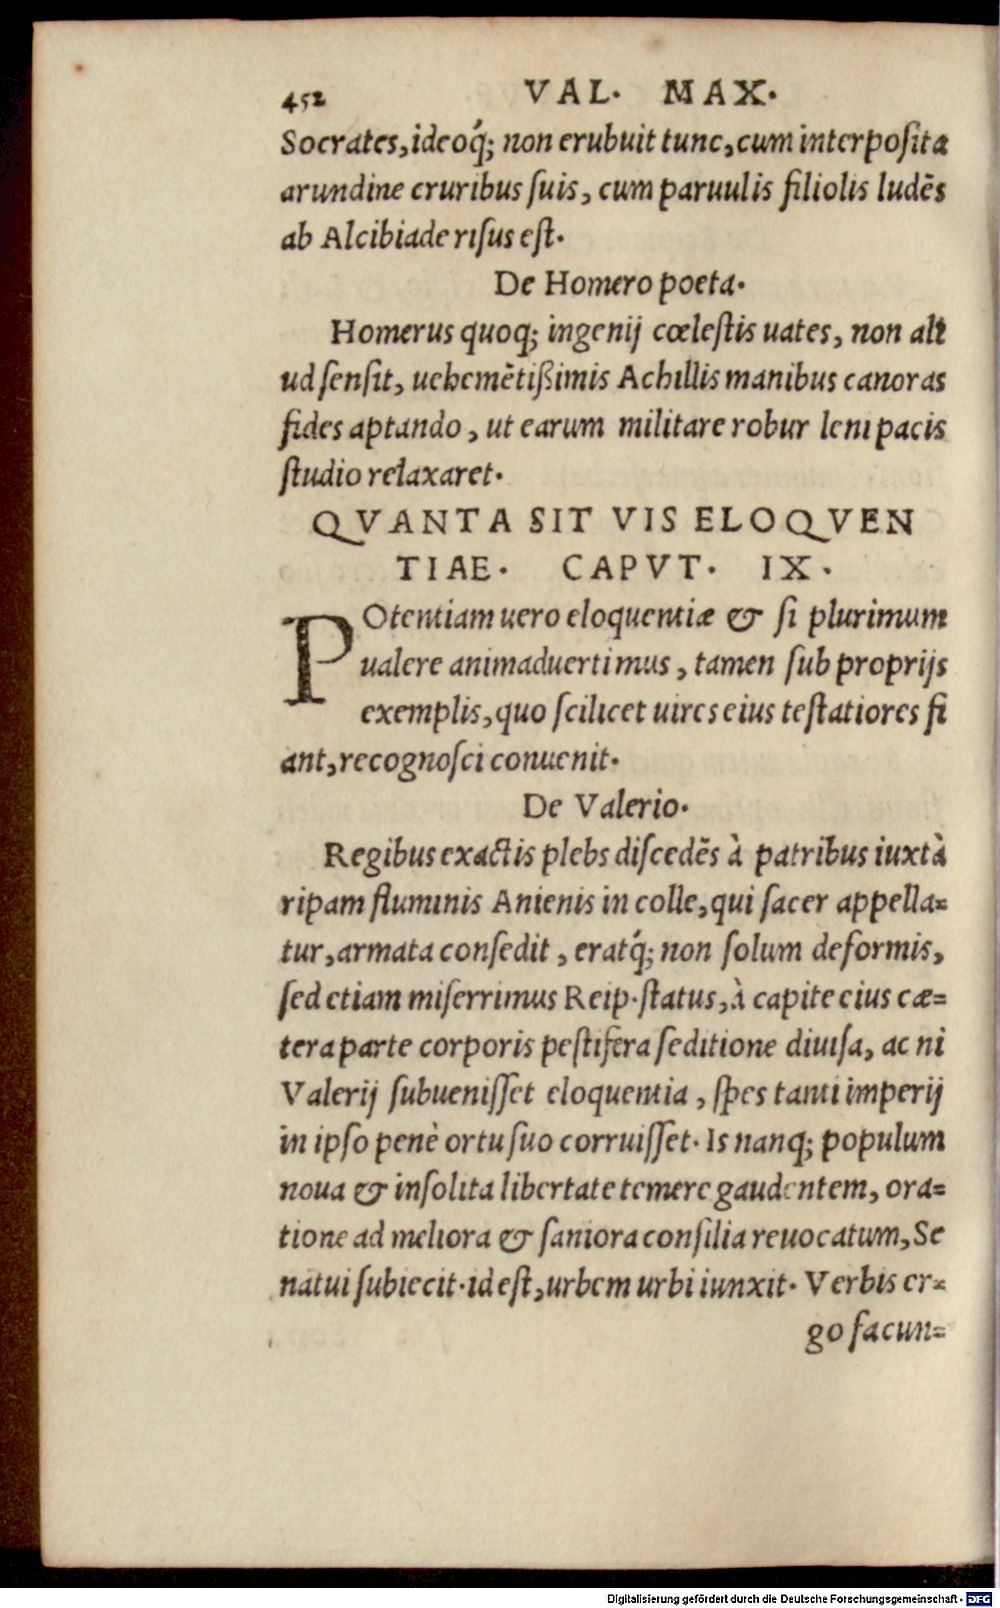 452 VAL. MAX.
Socrates, ideoq́; non erubuit tunc, cum interposita
arundine cruribus suis, cum paruulis filiolis ludēs
ab Alcibiade risus est.
De Homero poeta.
Homerus quoq; ingenij cœlestis uates, non ali
ud sensit, uehemētißimis Achillis manibus canoras
fides aptando, ut earum militare robur leni pacis
studio relaxaret.
QVANTA SIT VIS ELOQVEN
TIAE. CAPVT. IX.
POtentiam uero eloquentiæ & si plurimum
ualere animaduertimus, tamen sub proprijs
exemplis, quo scilicet uires eius testatiores fi
ant, recognosci conuenit.
De Valerio.
Regibus exactis plebs discedēs à patribus iuxtà
ripam fluminis Anienis in colle, qui sacer appella=
tur, armata consedit, eratq́; non solum deformis,
sed etiam miserrimus Reip. status, à capite eius cæ=
tera parte corporis pestifera seditione diuisa, ac ni
Valerij subuenisset eloquentia, spes tanti imperij
in ipso penè ortu suo corruisset. Is nanq; populum
noua & insolita libertate temere gaudentem, ora=
tione ad meliora & saniora consilia reuocatum, Se
natui subiecit. id est, urbem urbi iunxit. Verbis er=
go facun=
Digitalisierung gefördert durch die Deutsche Forschungsgemeinschaft - DFG